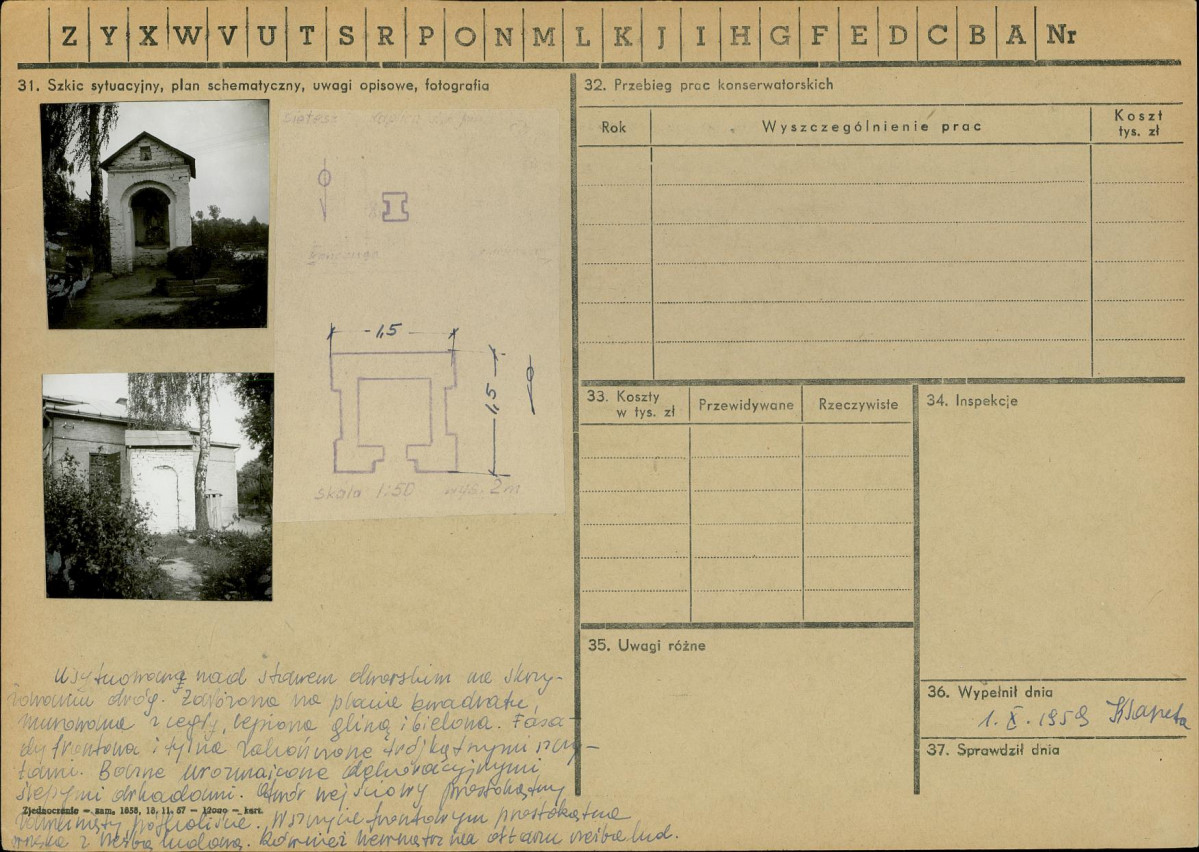 Z Y X W V U T S R P O N M L K J I H G F E D C B A Nr
31. Szkic sytuacyjny, plan schematyczny, uwagi opisowe, fotografia
1,5
1,5
skala 1:50 wys. 2 m
Usytuowana nad stawem dworskim na skrzy-
żowaniu dróg. Założona na planie kwadratu,
murowana z cegły, lepiona gliną i bielona. Fasa-
dy frontowa i tylna zakończone trójkątnymi szczy-
tami. Boczne urozmaicone dekoracyjnymi
ślepymi arkadami. Otwór wejściowy prostokątny
zamknięty półkoliście. W szczycie frontowym prostokątna
wnęka z rzeźbą ludową. Również wewnątrz na ołtarzu rzeźba lud.
Zjednoczenie — zam. 1858, 18. 11. 57 — 12000 — kart.
32. Przebieg prac konserwatorskich
Rok Wyszczególnienie prac Koszt tys. zł
33. Koszty w tys. zł Przewidywane Rzeczywiste
34. Inspekcje
35. Uwagi różne
36. Wypełnił dnia
1. X. 1959
37. Sprawdził dnia